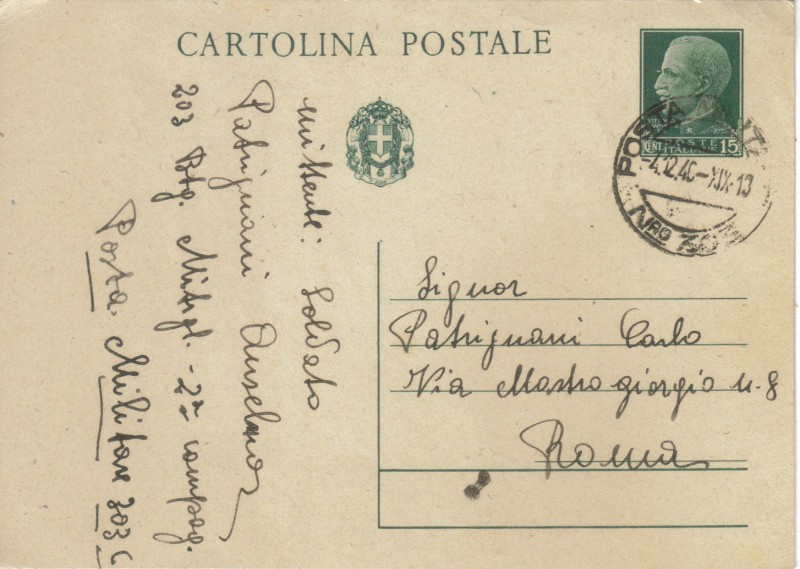 CARTOLINA POSTALE
POSTE
ITALIANE
CENT. 15
POSTA MILITARE
-4.12.40-XIX-13
NRO
mittente: Soldato
Patrignani Anselmo
203 Btg. Mitragl. - 2ª compag.
Posta Militare 303 C
Signor
Patrignani Carlo
Via Mastro giorgio n. 8
Roma